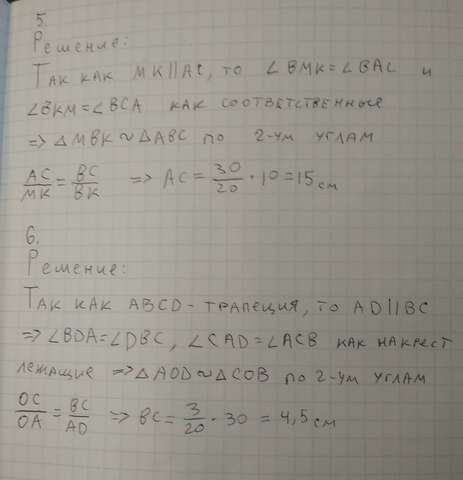 5.
Решение:
Так как MK||AC, то ∠BMK=∠BAC и
∠BKM=∠BCA как соответственные
=> △MBK ~ △ABC по 2-ум углам
AC/MK = BC/BK => AC = 30/20 · 10 = 15 см
6.
Решение:
Так как ABCD - трапеция, то AD||BC
=> ∠BDA=∠DBC, ∠CAD=∠ACB как накрест
лежащие => △AOD ~ △COB по 2-ум углам
OC/OA = BC/AD => BC = 3/20 · 30 = 4,5 см